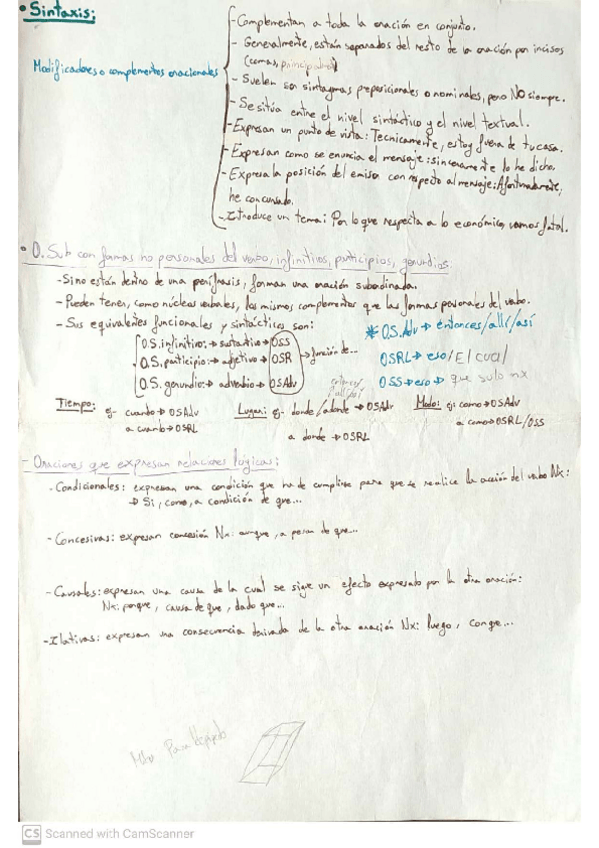 • Sintaxis:
Modificadores o complementos oracionales
- Complementan a toda la oración en conjunto.
- Generalmente, están separados del resto de la oración por incisos
(comas, principalmente)
- Suelen ser sintagmas preposicionales o nominales, pero NO siempre.
- Se sitúa entre el nivel sintáctico y el nivel textual.
- Expresan un punto de vista: Tecnicamente, estoy fuera de tu casa.
- Expresan como se enuncia el mensaje: sinceramente lo he dicho.
- Expresa la posición del emisor con respecto al mensaje: Afortunadamente,
he concursado.
- Introduce un tema: Por lo que respecta a lo económico, vamos fatal.
• O. Sub con formas no personales del verbo, infinitivos, participios, gerundios:
- Si no están dentro de una perífrasis, forman una oración subordinada.
- Pueden tener, como núcleos verbales, los mismos complementos que las formas personales del verbo.
- Sus equivalentes funcionales y sintácticos son:
O.S. infinitivo: → sustantivo → OSS
O.S. participio: → adjetivo → OSR → función de...
O.S. gerundio: → adverbio → OSAdv
* O.S. Adv → entonces/allí/así
OSRL → eso/El cual
OSS → eso → que solo nx
entonces/
allí/así
Tiempo: ej- cuando → OSAdv
a cuando → OSRL
Lugar: ej- donde/adonde → OSAdv
a donde → OSRL
Modo: ej: como → OSAdv
a como → OSRL/OSS
- Oraciones que expresan relaciones lógicas:
- Condicionales: expresan una condición que ha de cumplirse para que se realice la acción del verbo Nx:
→ Si, como, a condición de que...
- Concesivas: expresan concesión Nx: aunque, a pesar de que...
- Causales: expresan una causa de la cual se sigue un efecto expresado por la otra oración:
Nx: porque, causa de que, dado que...
- Ilativas: expresan una consecuencia derivada de la otra oración Nx: luego, conque...
CS Scanned with CamScanner